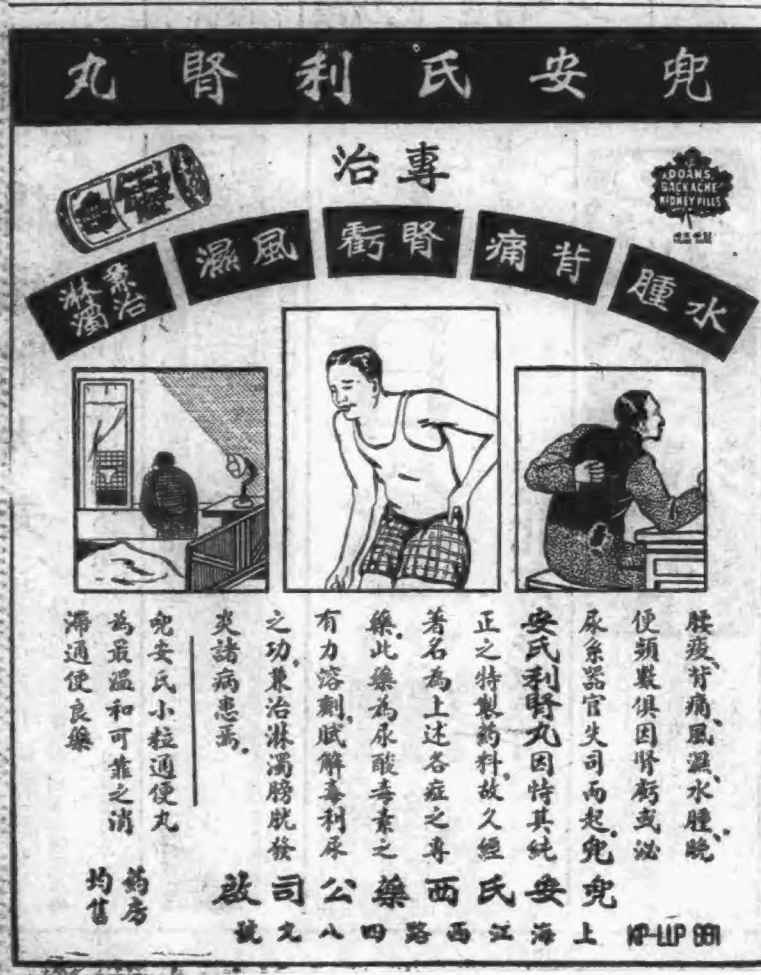 兜安氏利腎丸
專治
DOANS
BACKACHE
KIDNEY PILLS
水腫
背痛
腎虧
風濕
兼治
淋濁
腰痠、背痛、風濕、水腫、晚
便頻數俱因腎虧或泌
尿系器官失司而起。兜
安氏利腎丸因恃其純
正之特製葯料，故久經
著名為上述各症之專
藥。此藥為尿酸毒素之
有力溶劑，賦解毒利尿
之功，兼治淋濁膀胱發
炎諸病患焉。
兜安氏小粒通便丸
為最溫和可靠之消
滯通便良藥
兜安氏西藥公司啟
葯房
均售
KP-LLP 881
上海江西路四八九號